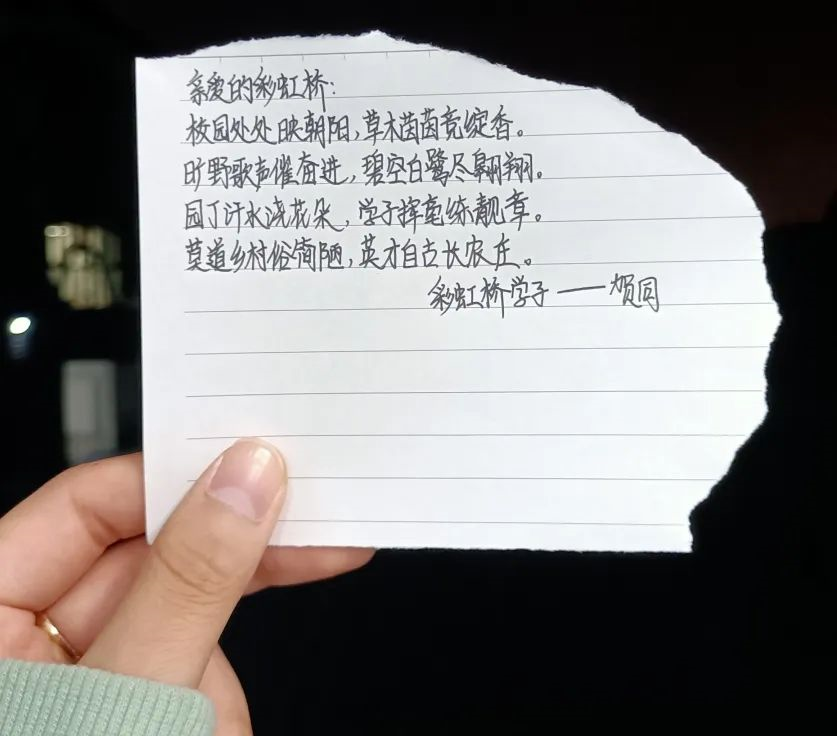 亲爱的彩虹桥:
校园处处映朝阳,草木茵茵竞绽香。
旷野歌声催奋进,碧空白鹭尽翱翔。
园丁汗水浇花朵,学子挥毫练靓章。
莫道乡村俗简陋,英才自古长农庄。
彩虹桥学子——贺同